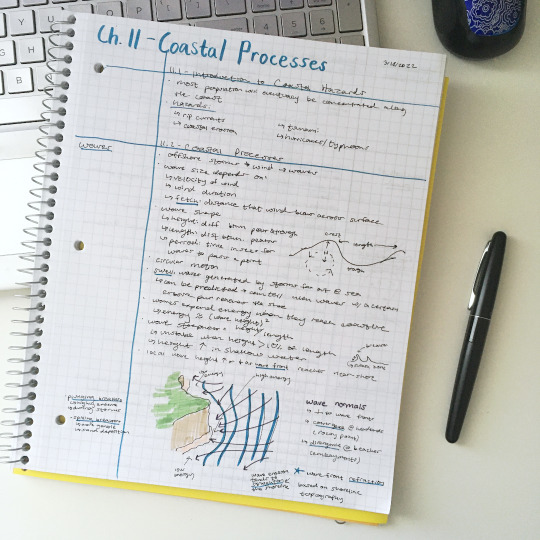 Ch. 11 - Coastal Processes
3/18/2022
11.1 - Introduction to Coastal Hazards
· most population will eventually be concentrated along
the coast
· hazards:
↳ rip currents
↳ coastal erosion
↳ tsunami
↳ hurricanes/typhoons
waves
11.2 - Coastal Processes
· offshore storms → wind → waves
· wave size depends on:
↳ velocity of wind
↳ wind duration
↳ fetch: distance that wind blows across surface
· wave shape
↳ height: diff btwn peak & trough
↳ length: dist btwn peaks
↳ period: time in sec for
waves to pass a point
crest
length
trough
· circular motion
· swell: waves generated by storms far out @ sea
↳ can be predicted
· waves expend energy when they reach coastline
↳ energy is (wave height)²
↳ unstable when height > 10% of length
↳ height ↑ in shallow water
· local wave height ↑ or ↓ as wave front reaches near-shore
high energy
· plunging breakers
· spilling breakers
↳ sand deposition
low
energy
wave normals
↳ ⊥ to wave front
↳ converges @ headlands
(rocky point)
↳ divergence @ beaches
(embayments)
wave erosion
tends to
straighten
the shoreline
★ wave front refraction
based on shoreline
topography